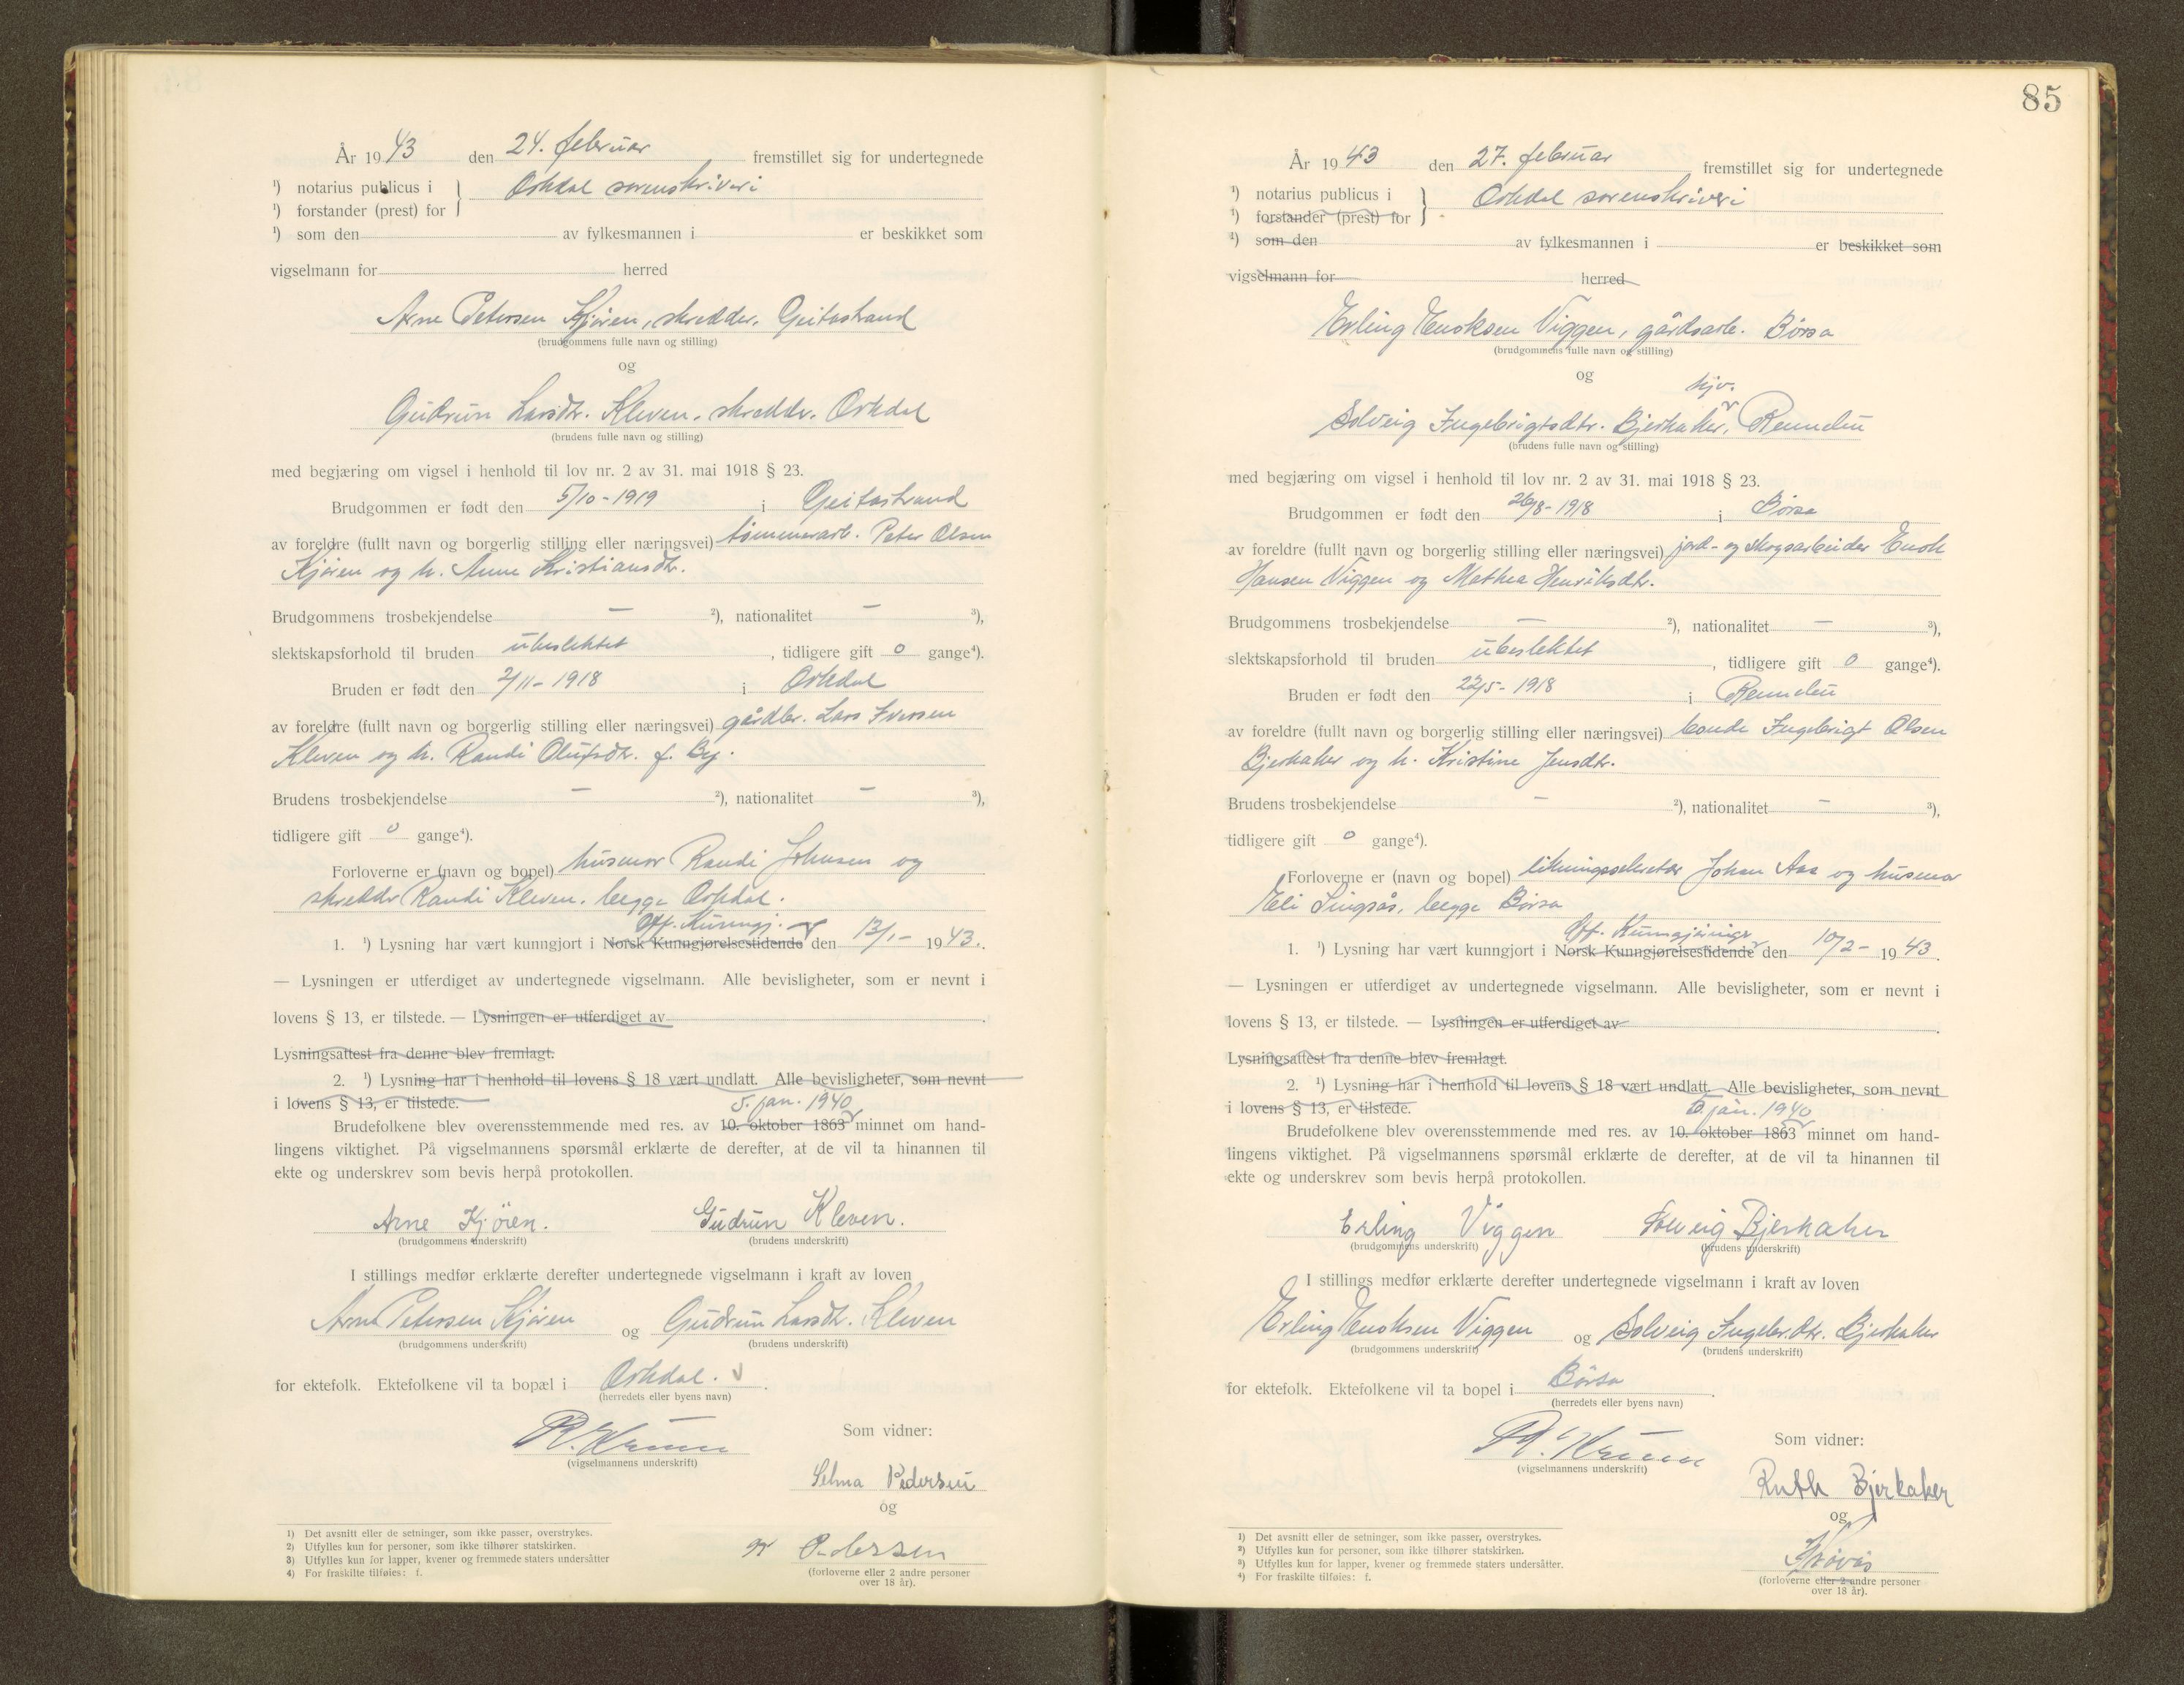 År 1943 den 24. februar fremstillet sig for undertegnede
¹) notarius publicus i } Orkdal sorenskriveri
¹) forstander (prest) for
¹) som den av fylkesmannen i er beskikket som
vigselmann for herred
Arne Petersen Kjøren, skredder, Geitastrand
(brudgommens fulle navn og stilling)
og
Gudrun Larsdtr. Kleven, skreddr. Orkdal
(brudens fulle navn og stilling)
med begjæring om vigsel i henhold til lov nr. 2 av 31. mai 1918 § 23.
Brudgommen er født den 5/10-1919 i Geitastrand
av foreldre (fullt navn og borgerlig stilling eller næringsvei) tømmerarb. Peter Olsen
Kjøren og h. Anne Kristiansdtr.
Brudgommens trosbekjendelse — ²), nationalitet — ³),
slektskapsforhold til bruden ubeslektet, tidligere gift 0 gange⁴).
Bruden er født den 2/11-1918 i Orkdal
av foreldre (fullt navn og borgerlig stilling eller næringsvei) gårdbr. Lars Iversen
Kleven og h. Randi Olufsdtr. f. By.
Brudens trosbekjendelse — ²), nationalitet — ³),
tidligere gift 0 gange⁴).
Forloverne er (navn og bopel) husmor Randi Johnsen og
skreddr Randi Kleven, begge Orkdal.
Off. Kunngj.
1. ¹) Lysning har vært kunngjort i Norsk Kunngjørelsestidende den 13/1- 1943.
— Lysningen er utferdiget av undertegnede vigselmann. Alle bevisligheter, som er nevnt i
lovens § 13, er tilstede. — Lysningen er utferdiget av .
Lysningsattest fra denne blev fremlagt.
2. ¹) Lysning har i henhold til lovens § 18 vært undlatt. Alle bevisligheter, som nevnt
i lovens § 13, er tilstede. 5. jan. 1940
Brudefolkene blev overensstemmende med res. av 10. oktober 1863 minnet om hand-
lingens viktighet. På vigselmannens spørsmål erklærte de derefter, at de vil ta hinannen til
ekte og underskrev som bevis herpå protokollen.
Arne Kjören. Gudrun Kleven.
(brudgommens underskrift) (brudens underskrift)
I stillings medfør erklærte derefter undertegnede vigselmann i kraft av loven
Arne Petersen Kjøren og Gudrun Larsdtr. Kleven
(brudgommens underskrift) (brudens underskrift)
for ektefolk. Ektefolkene vil ta bopæl i Orkdal.
(herredets eller byens navn)
Som vidner:
(vigselmannens underskrift)
Selma Pedersen
og
Pedersen
(forloverne eller 2 andre personer
over 18 år).
1) Det avsnitt eller de setninger, som ikke passer, overstrykes.
2) Utfylles kun for personer, som ikke tilhører statskirken.
3) Utfylles kun for lapper, kvener og fremmede staters undersåtter
4) For fraskilte tilføies: f.
85
År 1943 den 27. februar fremstillet sig for undertegnede
¹) notarius publicus i } Orkdal sorenskriveri
¹) forstander (prest) for
¹) som den av fylkesmannen i er beskikket som
vigselmann for herred
Erling Enoksen Viggen, gårdsarb. Børsa
(brudgommens fulle navn og stilling)
og hjv.
Solveig Ingebrigtsdtr. Bjerkaker, Rennebu
(brudens fulle navn og stilling)
med begjæring om vigsel i henhold til lov nr. 2 av 31. mai 1918 § 23.
Brudgommen er født den 26/8-1918 i Børsa
av foreldre (fullt navn og borgerlig stilling eller næringsvei) jord- og skogsarbeider Enok
Hansen Viggen og Mathea Henriksdtr.
Brudgommens trosbekjendelse — ²), nationalitet — ³),
slektskapsforhold til bruden ubeslektet, tidligere gift 0 gange⁴).
Bruden er født den 22/5-1918 i Rennebu
av foreldre (fullt navn og borgerlig stilling eller næringsvei) bonde Ingebrigt Olsen
Bjerkaker og h. Kristine Jensdtr.
Brudens trosbekjendelse — ²), nationalitet — ³),
tidligere gift 0 gange⁴).
Forloverne er (navn og bopel) likningssekretær Johan Aaa og husmor
Eli Singsås, begge Børsa
Off. Kunngjøringer
1. ¹) Lysning har vært kunngjort i Norsk Kunngjørelsestidende den 10/2- 1943.
— Lysningen er utferdiget av undertegnede vigselmann. Alle bevisligheter, som er nevnt i
lovens § 13, er tilstede. — Lysningen er utferdiget av .
Lysningsattest fra denne blev fremlagt.
2. ¹) Lysning har i henhold til lovens § 18 vært undlatt. Alle bevisligheter, som nevnt
i lovens § 13, er tilstede. 5. jan. 1940
Brudefolkene blev overensstemmende med res. av 10. oktober 1863 minnet om hand-
lingens viktighet. På vigselmannens spørsmål erklærte de derefter, at de vil ta hinannen til
ekte og underskrev som bevis herpå protokollen.
Erling Viggen Solveig Bjerkaker
(brudgommens underskrift) (brudens underskrift)
I stillings medfør erklærte derefter undertegnede vigselmann i kraft av loven
Erling Enoksen Viggen og Solveig Ingebr.dtr. Bjerkaker
(brudgommens underskrift) (brudens underskrift)
for ektefolk. Ektefolkene vil ta bopel i Børsa.
(herredets eller byens navn)
Som vidner:
(vigselmannens underskrift)
Ruth Bjerkaker
og
(forloverne eller 2 andre personer
over 18 år).
1) Det avsnitt eller de setninger, som ikke passer, overstrykes.
2) Utfylles kun for personer, som ikke tilhører statskirken.
3) Utfylles kun for lapper, kvener og fremmede staters undersåtter.
4) For fraskilte tilføies: f.